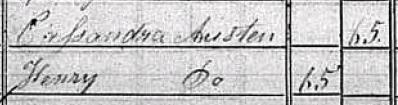 Cassandra Austen 65
Henry Do 65